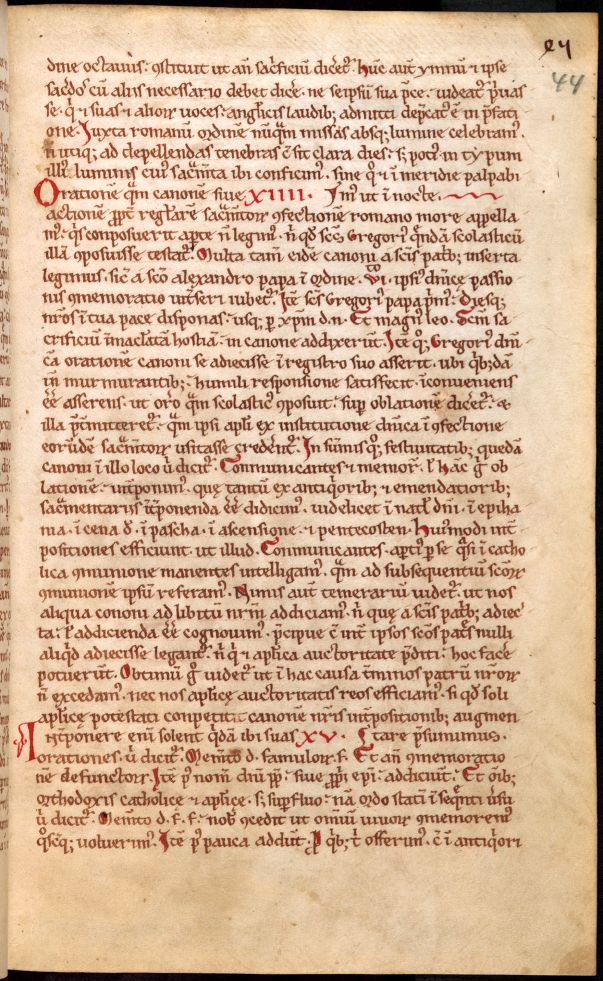 44
dine octauus. ꝯstituit ut an̄ sac̄ficiū dicet᷑. hūc aut̄ ymnū ⁊ ipse
sac̄dos cū aliis necessario debet dicē. ne seipsū sua p̄ce. uideat᷑ p̄uas
se. q̄ ⁊ suas ⁊ alioꝝ uoces. anglicis laudibꝫ admitti dep̄cat᷑ ē in p̄fati
one. Iuxta romanū ordinē nūq̄m missas absqꝫ lumine celebram᷒.
n̄ utiqꝫ ad depellendas tenebras c̄ sit clara dies. sꝫ poti᷒ in typum
illi᷒ luminis cui᷒ sac̄mta ibi conficim᷒. sine q̊ ⁊ in meridie palpabi
Orationē q̄m canonē siue XIIII. m᷒ ut ī nocte.
actionē ꝓpt̄ reglarē sac̄mtoꝝ ꝯfectionē romano more appella
m᷒. q̄s conposuerit aꝑte n̄ legim᷒. n̄ qd̄ sc̄s Gregori᷒ q̄ndā scolasticū
illā ꝯposuisse testat᷑. Multa tam̄ eidē canoni a sc̄is patribꝫ inserta
legimus. sic̄ a sc̄o alexandro papa ī ordine. vi. ipsi᷒ dn̄icę passio
nis ꝯmemoratio int̄seri iubet᷑. Itē sc̄s Gregori᷒ papa p̄m᷒. Diesqꝫ
nr̄os ī tua pace disponas. usqꝫ ꝑ xp̄m d.n. Et magn᷒ leo. Scm̄ sa
crificiū īmaclatā hostiā. in canone addixerūt. Itē qꝫ Gregori᷒ dn̄i
cā orationē canoni se adiecisse ī registro suo asserit. ubi q̄bꝫdā
īn̄ murmurantibꝫ. humili responsione satisfecit. īconueniens
ēē asserens. ut or̄o q̄m scolastic᷒ ꝯposuit. suꝑ oblationē dicet᷑. &
illa p̄t̄mitteret᷑. q̄m ipsi apl̄i ex institutione dn̄ica ī ꝯfectione
eorūdē sac̄mtoꝝ usitasse credent᷑. In sum̄is qꝫ festiuitatibꝫ quedā
canoni ī illo loco ū dicit᷑ Communicantes ⁊ memor̄. ł hāc ḡ ob
lationē. int̄ponim᷒. quę tantū ex antiq̄oribꝫ ⁊ emendatioribꝫ
sac̄mentariis īt̄ponenda ēē didicim᷒. uidelicet ī natł dn̄i. ī epiha
nia. ī cena d̄. ī pascha. ī ascensione. ⁊ pentecosten. Hui᷒modi int̄
positiones efficiunt. ut illud. Communicantes. aꝑti᷒ ꝑ se q̄si ī catho
lica ꝯmunione manentes intelligam᷒. q̄m ad subsequentiū sc̄oꝝ
ꝯmunionē ipsū referam᷒. Nimis aut̄ temerariū uidet᷑. ut nos
aliqua canoni ad libitū nr̄m addiciam᷒. n̄ quę a sc̄is patribꝫ adiec
ta. ł addicienda ēē cognouim᷒. p̄cipue c̄ int̄ ipsos sc̄os patr̄s nulli
aliq̄d adiecisse legant᷑. n̄ q̄ ⁊ apl̄ica auctoritate p̄diti. hoc facē
potuer̄t. Obtimū ḡ uidet᷑ ut ī hac causa t̄minos patrū nr̄oꝝ
n̄ excedam᷒. nec nos apl̄icę auctoritatis reos efficiam᷒. si qd̄ soli
apl̄icę potestati conpetit. canonē nr̄is int̄positionibꝫ augmen
Int̄ponere enī solent q̄dā ibi suas XV. tare p̄sumimus.
orationes. ū dicit᷑. Memto d. famuloꝝ. f. Et an̄ ꝯmemoratio
nē defunctoꝝ. Itē p᷒ nom̄ dn̄i pp̄. siue ꝓprii epī. addiciunt. Et om̄ibꝫ
orthodoxis catholicę ⁊ apl̄icę. sꝫ suꝑfluo. nā ordo statī ī seq̄nti ūsu
ū dicit᷑. Memto d. f. f. nob᷒ ꝯcedit ut omniū uiuoꝝ ꝯmemorem᷒
q̊scqꝫ uoluerim᷒. Itē p᷒ pauca addūt. ꝓ q̄bꝫ t̄ offerim᷒. c̄ ī antiq̄ori